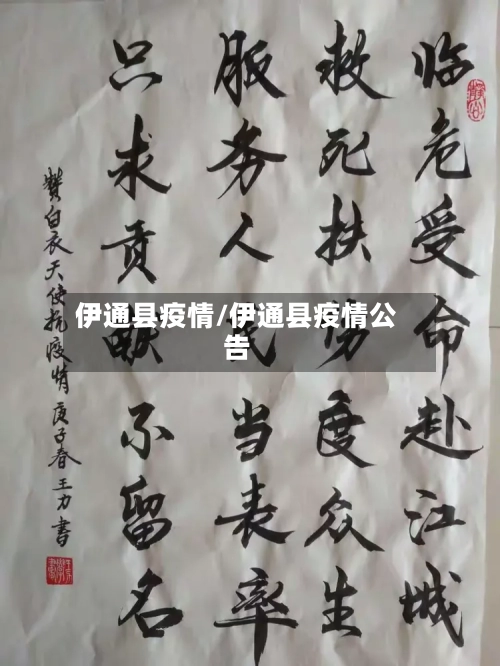 临危受命赴江城
救死扶伤度众生
服务人民当表率
只求贡献不留名
贊白衣天使抗疫情 庚子春王力書
伊通县疫情/伊通县疫情公
告